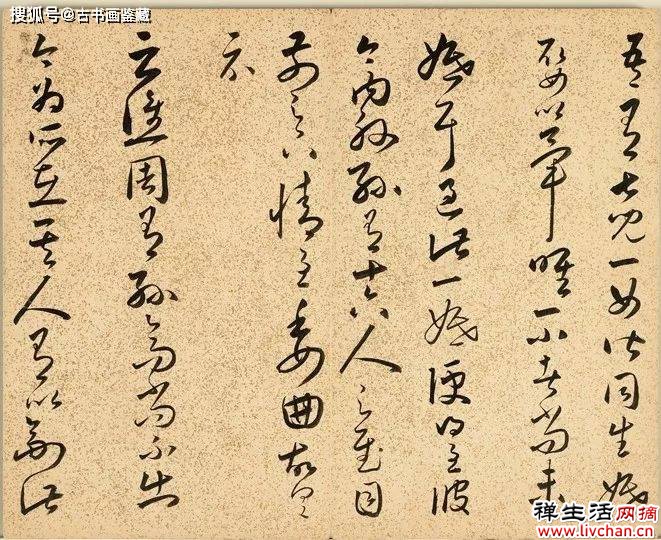 搜狐号@古书画鉴藏
吾有七兒一女皆同生婚
娶以畢唯一小者尚未
婚耳過此一婚便得至彼
今內外孫有十六人足慰目
前足下情至委曲故具
示
云譙周有孫高尚不出
今為所在其人有以副此
禅生活网摘
www.livchan.cn